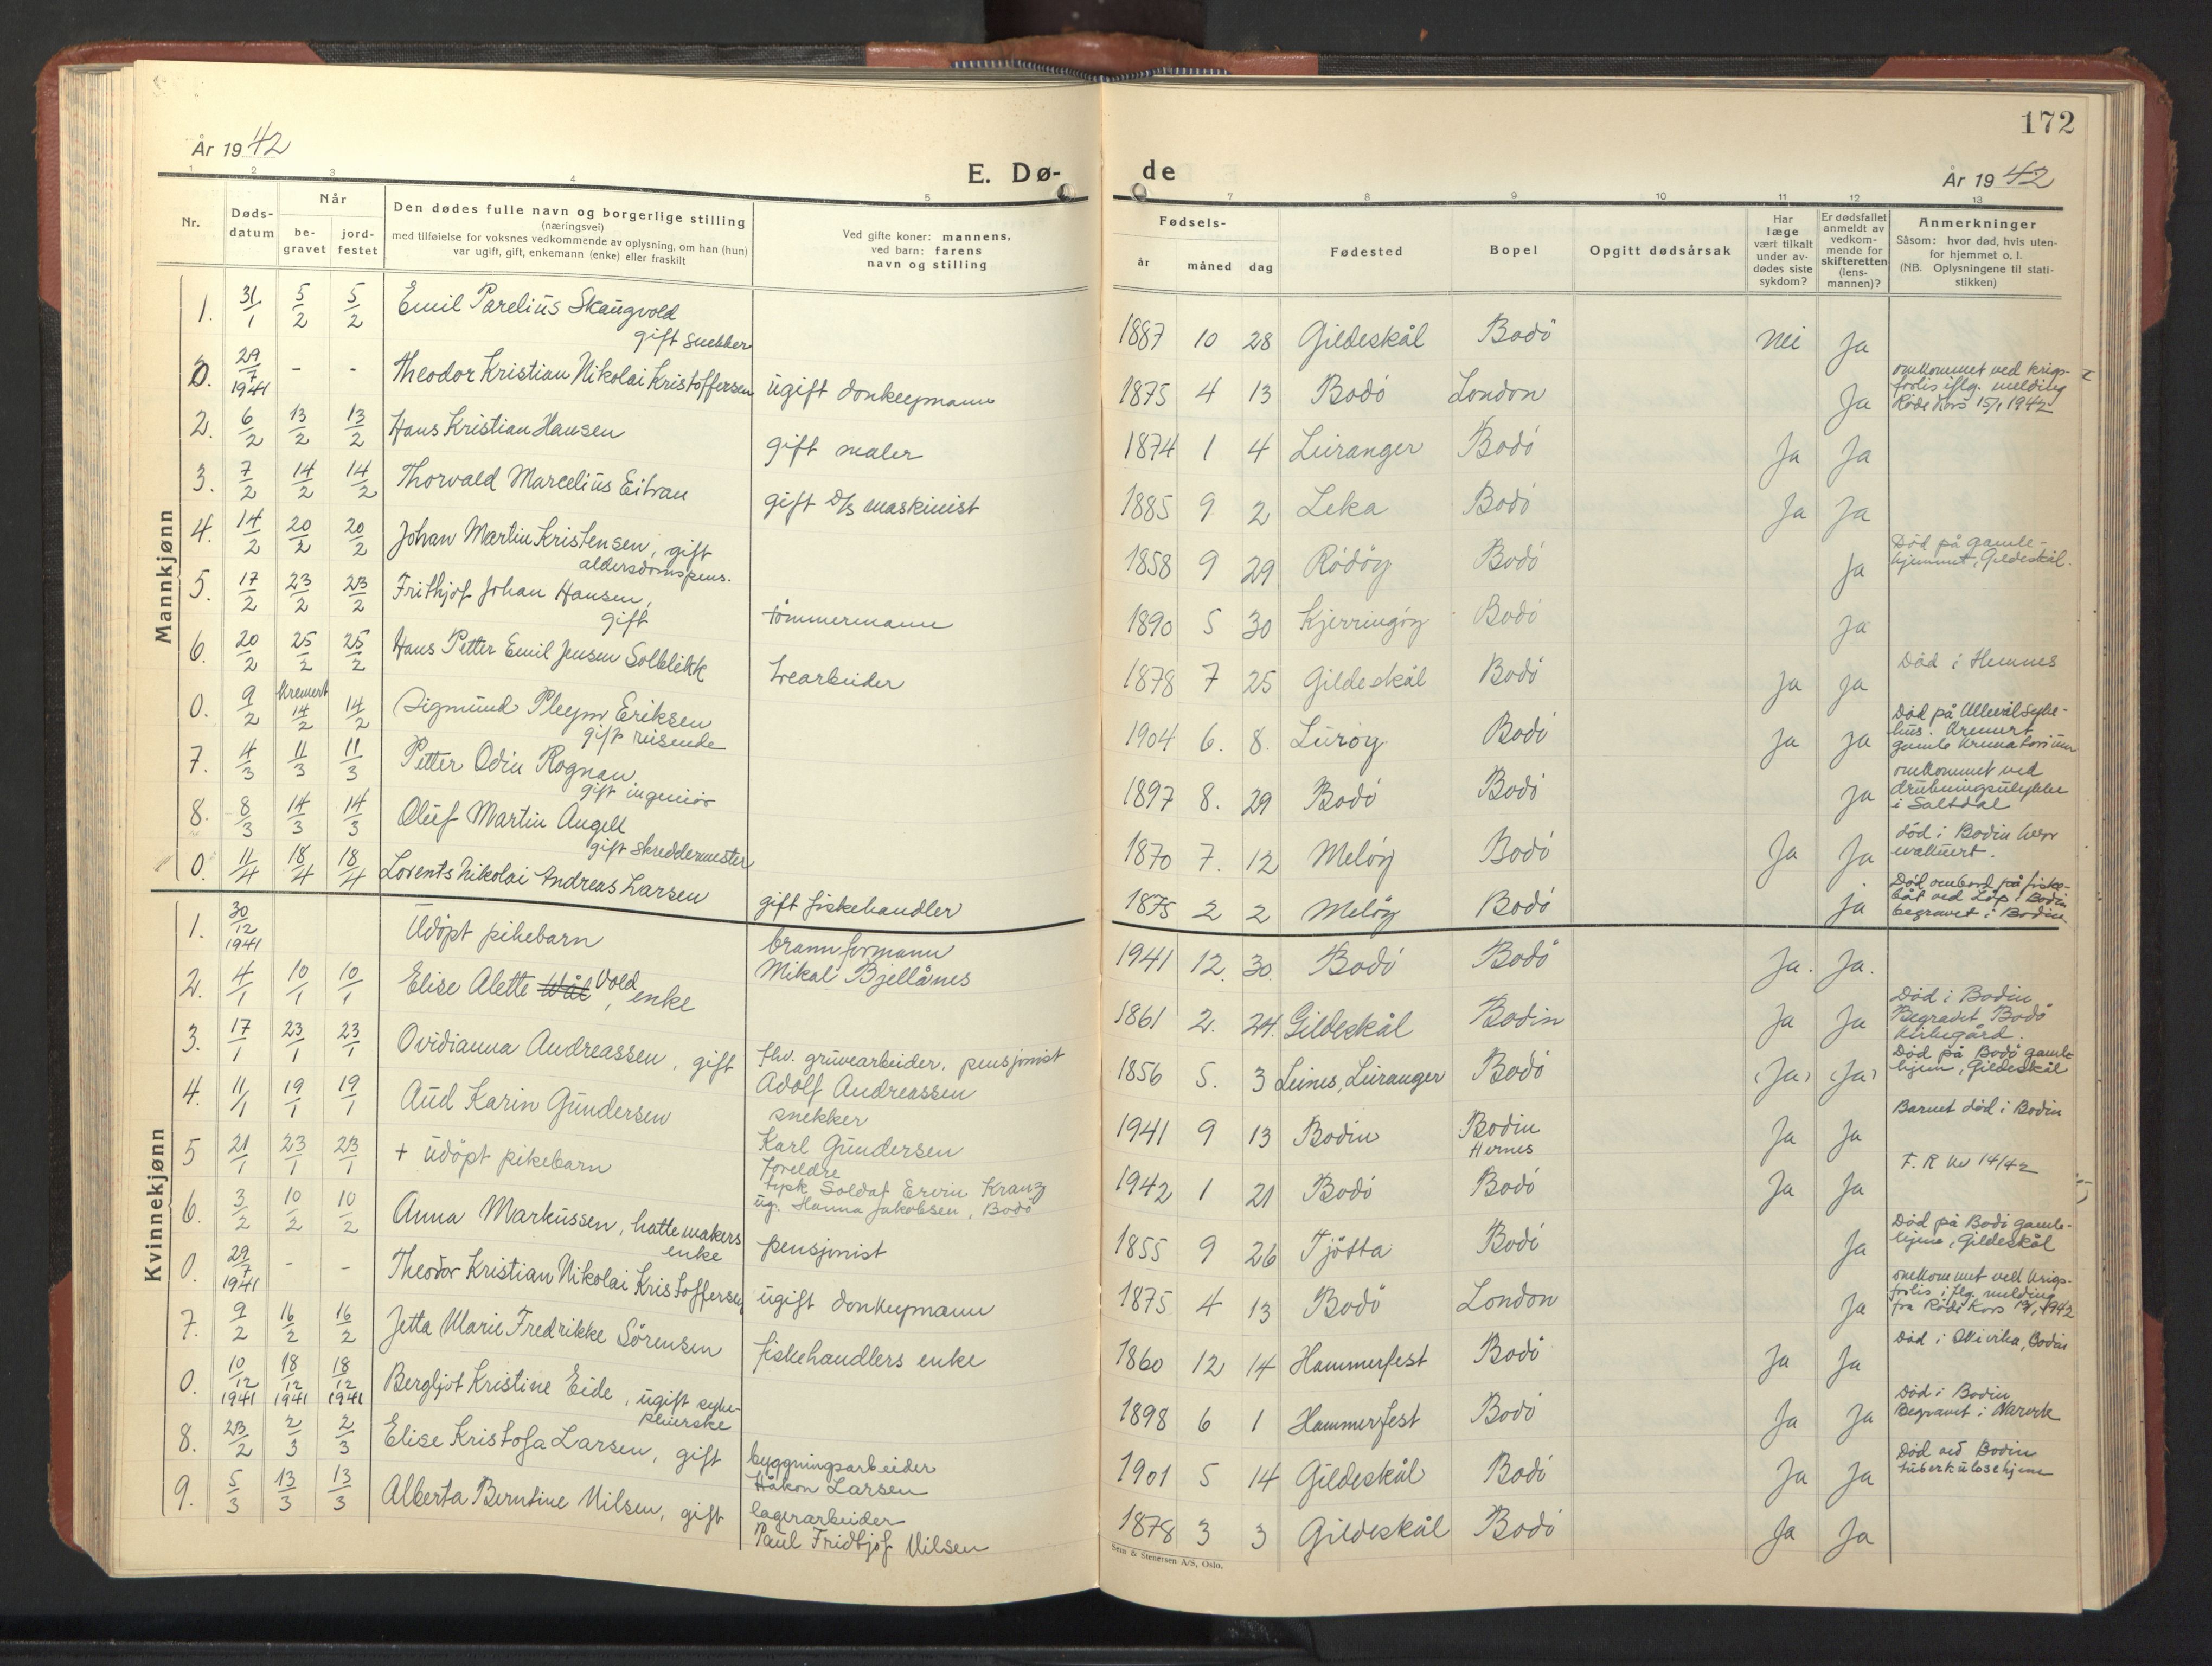 172
År 1942
E. Dø-
de
År 1942
1 2 3 4 5 7 8 9 10 11 12 13
Nr.
Døds-
datum
Når
be-
gravet
jord-
festet
Den dødes fulle navn og borgerlige stilling
(næringsvei)
med tilføielse for voksnes vedkommende av oplysning, om han (hun)
var ugift, gift, enkemann (enke) eller fraskilt
Ved gifte koner: mannens,
ved barn: farens
navn og stilling
Fødsels-
år måned dag
Fødested
Bopel
Opgitt dødsårsak
Har
læge
vært tilkalt
under av-
dødes siste
sykdom?
Er dødsfallet
anmeldt av
vedkom-
mende for
skifteretten
(lens-
mannen)?
Anmerkninger
Såsom: hvor død, hvis uten-
for hjemmet o. l.
(NB. Oplysningene til stati-
stikken)
Mannkjønn
1. 31/1 5/2 5/2 Emil Parelius Skaugvold
gift snekker
1887 10 28 Gildeskål Bodö nei Ja
0. 29/7 1941 - - Theodor Kristian Nikolai Kristoffersen ugift donkeymann
1875 4 13 Bodö London Ja
omkommet ved krigs-
forlis iflg. melding
Röde Kors 15/1 1942
2. 6/2 13/2 13/2 Hans Kristian Hansen gift maler
1874 1 4 Leiranger Bodö Ja Ja
3. 7/2 14/2 14/2 Thorvald Marcelius Eitran gift D/s maskinist
1885 9 2 Leka Bodö Ja Ja
4. 14/2 20/2 20/2 Johan Martin Kristensen, gift
aldersdomspens.
1858 9 29 Rödöy Bodö Ja
Död på gamle-
hjemmet, Gildeskål.
5. 17/2 23/2 23/2 Frithjof Johan Hansen,
gift tömmermann
1890 5 30 Kjerringöy Bodö Ja
6. 20/2 25/2 25/2 Hans Petter Emil Jensen Solblikk trearbeider
1878 7 25 Gildeskål Bodö Ja Ja
Död i Hemnes
0. 9/2 Kremert 14/2 14/2 Sigmund Pleym Eriksen
gift reisende
1904 6. 8. Luröy Bodö Ja Ja
Död på Ullevål syke-
hus. Kremert
gamle Krematorium
7. 4/3 11/3 11/3 Petter Odin Rognan.
gift ingeniör
1897 8. 29 Bodö Bodö Ja
omkommet ved
drukningsulykke
i Saltdal
8. 8/3 14/3 14/3 Oluf Martin Angell
gift skreddermester
1870 7. 12 Melöy Bodö Ja Ja
död i Bodin hvor
evakuert.
0. 11/4 18/4 18/4 Lorents Nikolai Andreas Larsen gift fiskehandler
1875 2 2 Melöy Bodö ja
Död ombord på fiske-
båt ved Löp i Bodin
begravet i Bodin
Kvinnekjønn
1. 30/12 1941 Udöpt pikebarn
brannformann
Mikal Bjellånes
1941 12. 30 Bodö Bodö Ja. Ja.
2. 4/1 10/1 10/1 Elise Alette Vold, enke
1861 2. 24. Gildeskål Bodin Ja Ja
Död i Bodin
Begravet Bodö
Kirkegård.
3. 17/1 23/1 23/1 Ovidianna Andreassen, gift
fhv. gruvearbeider, pensjonist
Adolf Andreassen
1856 5. 3 Leines, Leiranger Bodö (Ja) (Ja)
Död på Bodö gamle-
hjem, Gildeskål
4. 11/1 19/1 19/1 Aud Karin Gundersen
snekker
Karl Gundersen
1941 9 13 Bodin Bodin
Hernes
Ja Ja
Barnet död i Bodin
5 21/1 23/1 23/1 + udöpt pikebarn
Foreldre
tysk Soldat Ervin Kranz
ug. Hanna Jakobsen, Bodö
1942 1 21 Bodö Bodö Ja Ja
F. R kv 14/42
6. 3/2 10/2 10/2 Anna Markussen, hattemakers
enke pensjonist
1855 9 26 Tjötta Bodö Ja
Död på Bodö gamle-
hjem, Gildeskål
0. 29/7 1941 - - Theodor Kristian Nikolai Kristoffersen ugift donkeymann
1875 4 13 Bodö London Ja
omkommet ved krigs-
forlis iflg. melding
fra Röde Kors 1942
7. 9/2 16/2 16/2 Jetta Marie Fredrikke Sörensen fiskehandlers enke
1860 12 14 Hammerfest Bodö Ja Ja
Död i Olivika, Bodin
0. 10/12 1941 18/12 1941 18/12 1941 Bergljot Kristine Eide, ugift syke-
pleierske
1898 6 1 Hammerfest Bodö Ja Ja
Död i Bodin
Begravet i Narvik
8. 23/2 2/3 2/3 Elise Kristofa Larsen, gift
byggningsarbeider
Håkon Larsen
1901 5 14 Gildeskål Bodö Ja Ja
Död ved Bodin
tuberkulosehjem
9. 5/3 13/3 13/3 Alberta Berntine Nilsen, gift
lagerarbeider
Paul Fridtjof Nilsen
1878 3 3 Gildeskål Bodö Ja Ja
Sem & Stenersen A/S, Oslo.